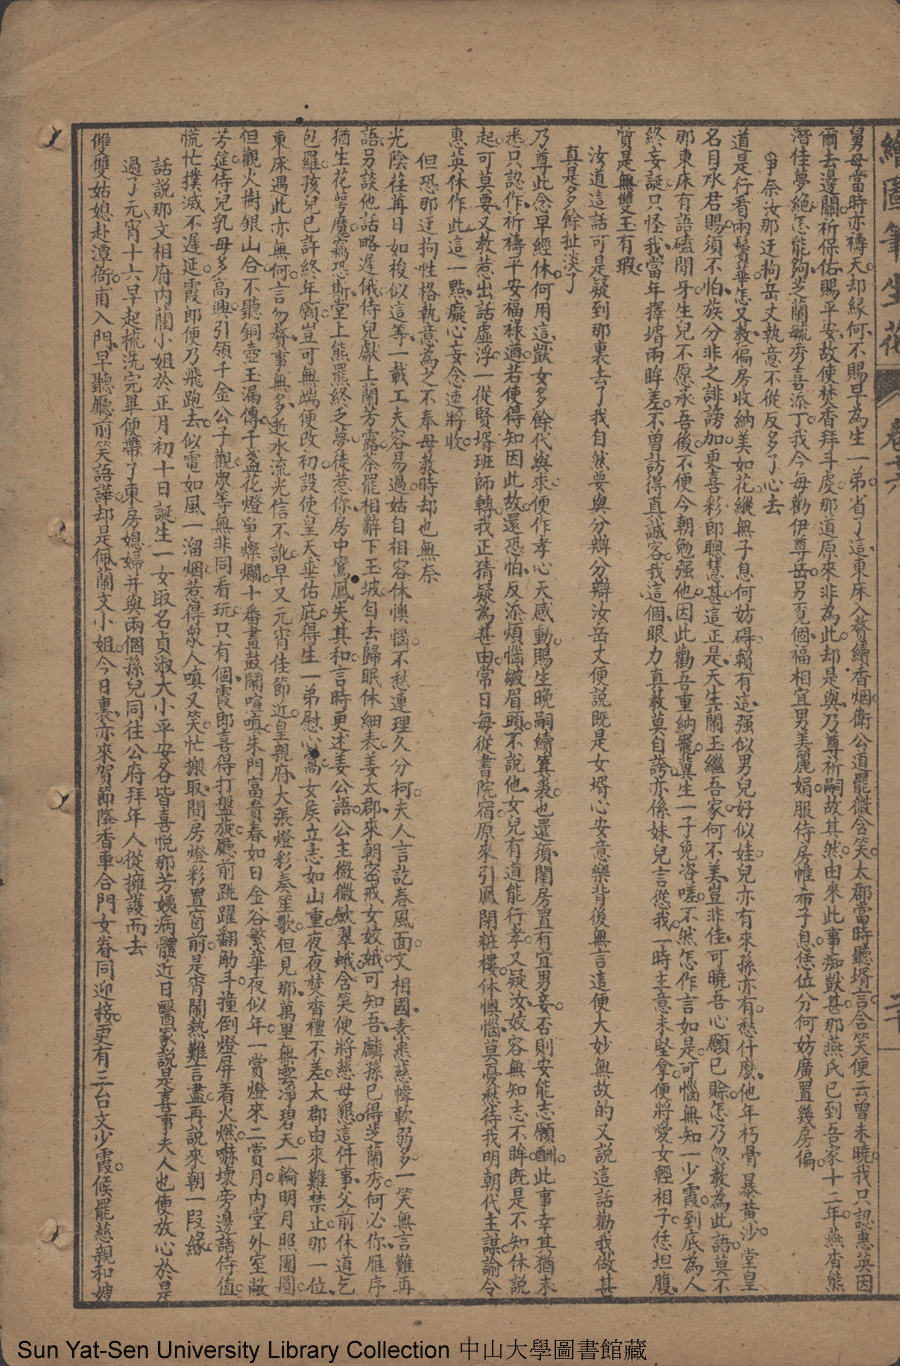 繪圖筆生花 卷十六 二十
舅母當時亦禱天却緣何不賜早為生一弟省了這東床入贅續香烟衛公道罷微含笑太郡當時聽壻言含笑便云曾未曉我只認惠英因
爾去邊關祈保佑賜平安故使焚香拜斗虔那道原來非為此却是與乃尊祈嗣故其然由來此事痴獃甚那燕氏已到吾家十二年燕杳熊
潛佳夢絕怎能夠芝蘭毓秀喜添丁我今毋勸伊尊岳另覓個福相宜男美麗娟服侍房帷希子息恁位分何妨廣置幾房偏
爭奈汝那迂拘岳丈執意不從反多了心去
道是行看兩鬢華怎又教偏房收納美如花縱無子息何妨碍賴有這强似男兒好似娃兒亦有來孫亦有愁什麼他年朽骨暴黃沙堂皇
名目承君賜須不怕族分非之誹謗加更喜彩郎聰慧甚這正是天生蘭玉繼吾家何不美豈非佳可曉吾心願已賒怎乃忽教為此語莫不
那東床有語磕閒牙生兒不愿承吾後不便今朝勉强他因此勸吾重納麗異生一子免咨嗟不然怎作言如是可惱無知一少霞到底為人
終妄誕只怪我當年擇壻兩眸差不曾訪得真誠客我這個眼力真教莫自誇亦係妹兒言從我一時主意未堅拿便將愛女輕相子恁坦腹
質是無雙玉有瑕
汝道這話可是疑到那裏去了我自然要與分辯分辯汝岳丈便說既是女壻心安意樂背後無言這便大妙無故的又說這話勸我做甚
真是多餘扯淡了
乃尊此念早經休何用這獃女多餘代與求便作孝心天感動賜生晚嗣續箕裘也還須閨房置有宜男妾否則安能志願酬此事幸其猶未
悉只認作祈禱平安福祿遒若使得知因此故還恐怕反添煩惱皺眉頭不說他女兒有道能行孝又疑汝姣容無知志不眸既是不知休說
起可莫要又教惹出話虛浮一從賢壻班師轉我正猜疑為甚由常日每從書院宿原來引鳳閉粧樓休懊惱莫憂愁待我明朝代主謀諭令
惠英休作此這一點癡心妄念速將收
但恐那迂拘性格執意為之不奉母義時却也無奈
光陰荏苒日如梭似這等一載工夫容易過姑自相容休懊惱不愁連理久分柯夫人言訖春風面文相國素悉慈幃軟弱多一笑無言難再
語另談他話略遲俄侍兒獻上蘭芳露茶罷相辭下玉坡自去歸眠休細表姜太郡來朝密戒女姣娥可知吾麟孫已得芝蘭秀何必你雁序
猶生花萼魔竊恐斯堂上熊羆終乏夢徒惹你房中鸞鳳失其和言時更述姜公語公主微微斂翠蛾含笑便將慈母懇這件事父前休道乞
包羅孩兒已許終年願豈可無端便改初設使皇天垂佑庇得生一弟慰心窩女矣立志如山重夜夜焚香禮不差太郡由來難禁止那一位
東床遇此亦無何言勿聱事無多逝水流光信不訛早又元宵佳節近皇親府大張燈彩奏笙歌但見那萬里無雲淨碧天一輪明月照團圓
但觀火樹銀山合不聽銅壺玉漏傳千盞花燈爭燦爛十番畫鼓鬧喧嗔朱門富貴春如日金谷繁華夜似年一賞燈來二賞月內堂外室敞
芳筵侍兒乳母多高興引領千金公子觀眾等無非同看玩只有個霞郎喜得打盤旋廳前跳躍翻觔斗撞倒燈屏着火燃嚇壞旁邊諸侍值
慌忙撲滅不遲延霞郎便乃飛跑去似電如風一溜烟惹得眾人嗔又笑忙搬取間房燈彩置窗前是宵鬧熱難言盡再說來朝一段緣
話說那文相府內蘭小姐於正月初十日誕生一女取名貞淑大小平安各皆喜悅那芳姨病體近日醫家說是喜事夫人也便放心於是
過了元宵十六早起梳洗完畢便帶了東房媳婦并與兩個孫兒同往公府拜年人從擁護而去
雙雙姑媳赴潭衙甬入門早聽廳前笑語譁却是佩蘭文小姐今日裏亦來賀節蔭香車合門女眷同迎接更有三台文少霞候罷慈親和嫂
Sun Yat-Sen University Library Collection 中山大學圖書館藏